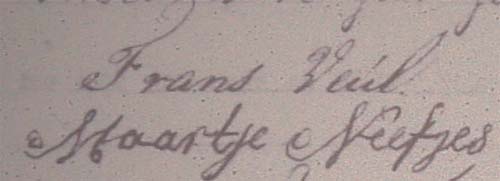 Frans Veúl
Maartje Neefjes